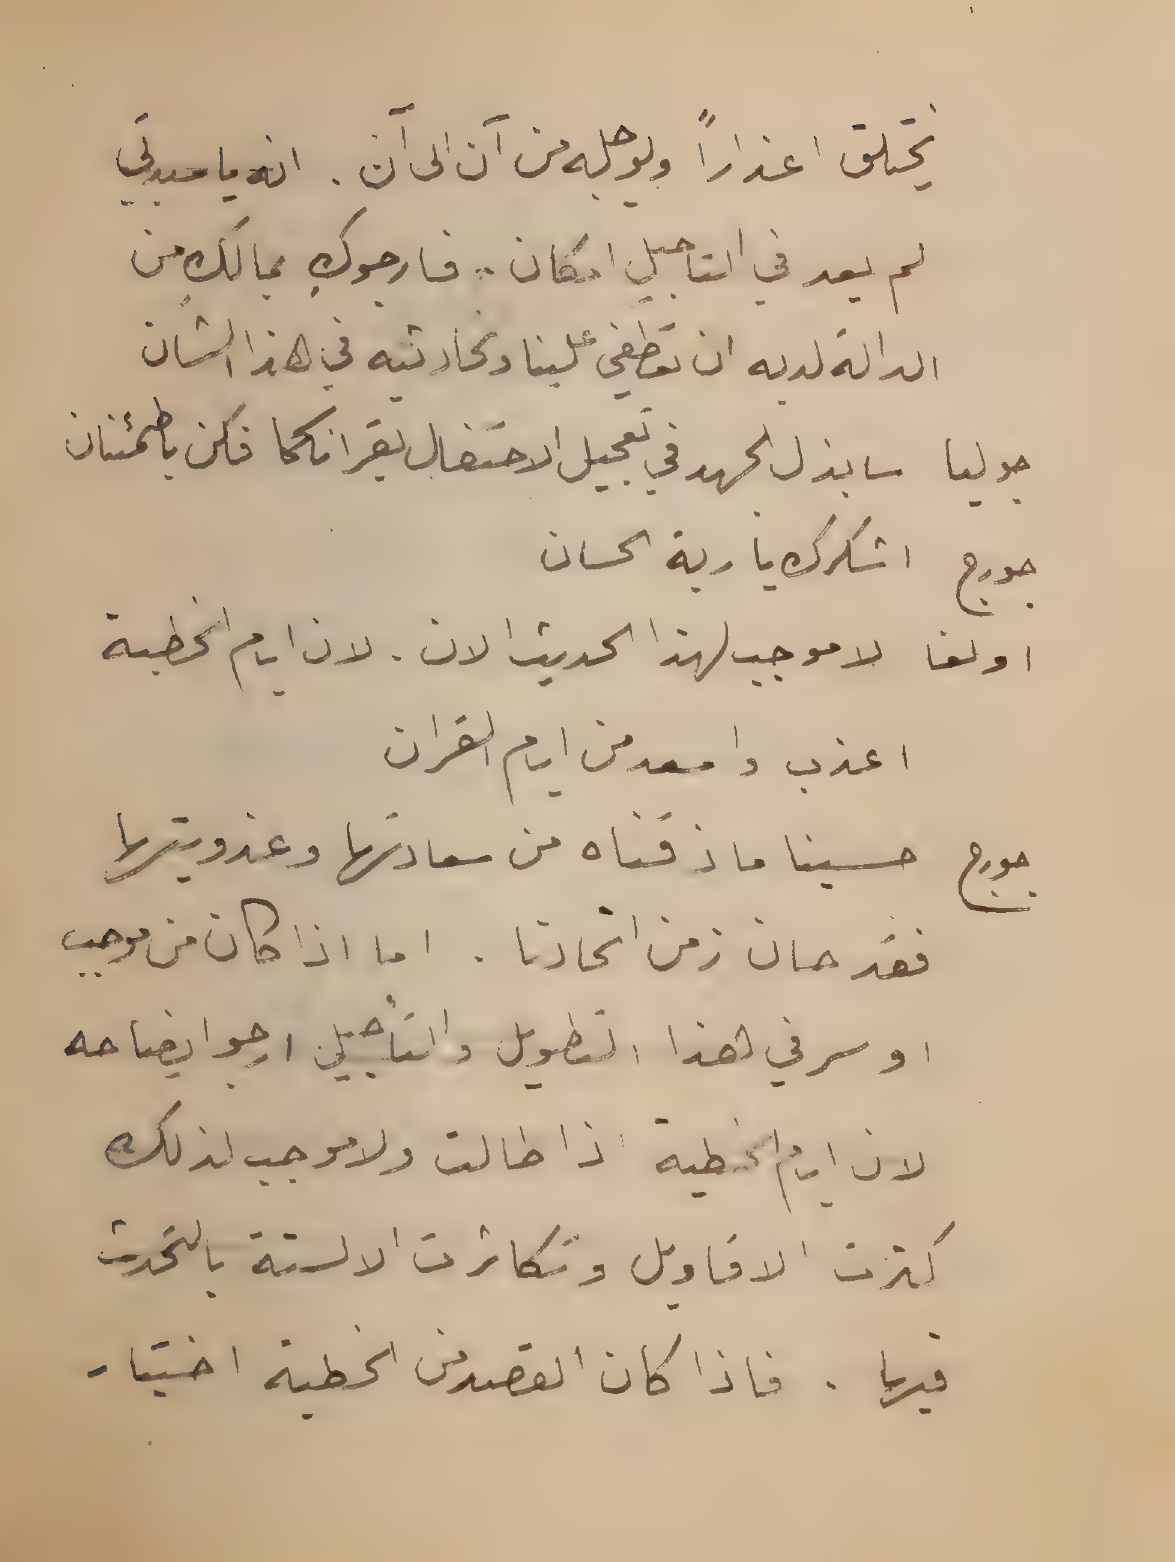 يختلق اعذاراً ويؤجله من آن الى آن . انه يا سيدتي
لم يعد في التاجيل امكان . فارجوكِ بمالكِ من
الدالة لديه ان تعطفي علينا وتحادثيه في هذا الشان
جوليا سابذل الجهد في تعجيل الاحتفال بقرانكما فكن باطمئنان
جورج اشكرك يا ربة الحسان
اولغا لا موجب لهذا الحديث الان . لان ايام الخطبة
اعذب واسعد من ايام القران
جورج حسبنا ما ذقناه من سعادتها وعذوبتها
فقد حان زمن اتحادنا . اما اذا كان من موجب
او سر في هذا التطويل والتأجيل ارجو ايضاحه
لان ايام الخطبة اذا طالت ولا موجب لذلك
كثرت الاقاويل وتكاثرت الالسنة بالتحدث
فيها . فاذا كان القصد من الخطبة اختبار